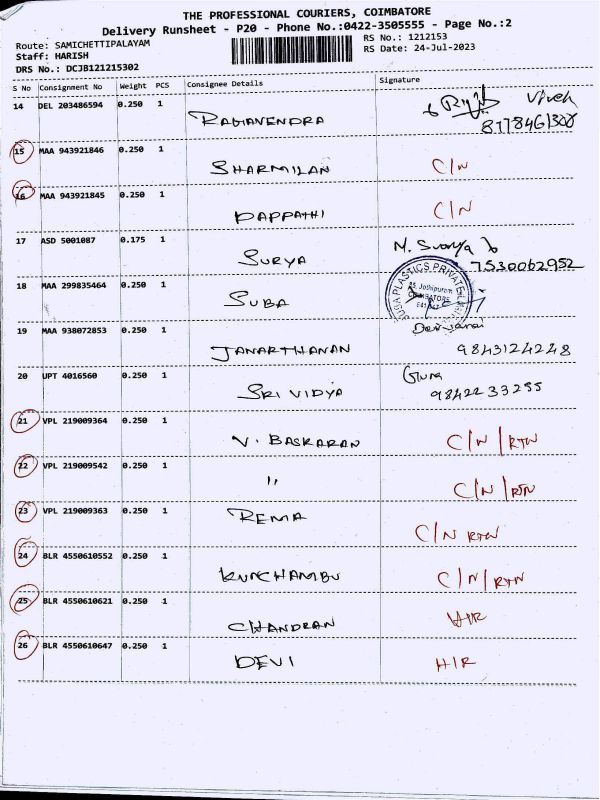 THE PROFESSIONAL COURIERS, COIMBATORE
Delivery Runsheet - P20 - Phone No.:0422-3505555 - Page No.:2
Route: SAMICHETTIPALAYAM
RS No.: 1212153
Staff: HARISH
RS Date: 24-Jul-2023
DRS No.: DCJB121215302
S No Consignment No Weight PCS Consignee Details Signature
14 DEL 203486594 0.250 1 RAGAVENDRA Vivek
15 MAA 943921846 0.250 1 SHARMILAN C/N
16 MAA 943921845 0.250 1 PAPPATHI C/N
17 ASD 5001087 0.175 1 SURYA M. Surya 7530062952
18 MAA 299835464 0.250 1 SUBA
SUBA PLASTICS PRIVATE
COIMBATORE
19 MAA 938072853 0.250 1 JANARTHANAN 9843124248
20 UPT 4016560 0.250 1 SRI VIDYA 9842233255
21 VPL 219009364 0.250 1 V. BASKARAN C/N/RTN
22 VPL 219009542 0.250 1 " C/N/RTN
23 VPL 219009363 0.250 1 REMA C/N RTN
24 BLR 4550610552 0.250 1 KUNCHAMBU C/N/RTN
25 BLR 4550610621 0.250 1 CHANDRAN H/R
26 BLR 4550610647 0.250 1 DEVI H/R